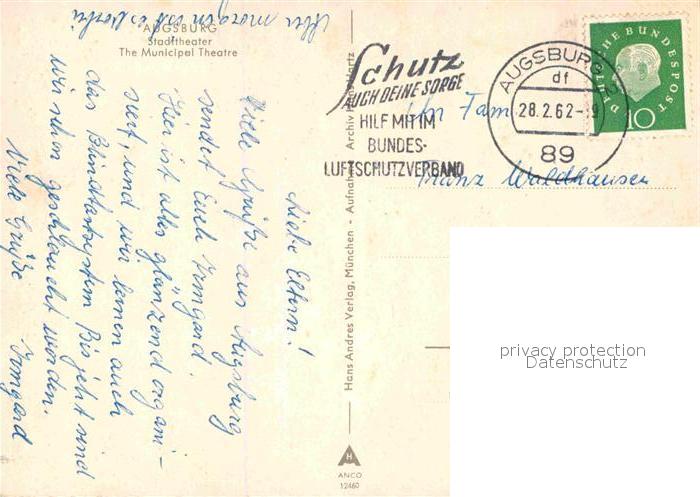 AUGSBURG
Stadttheater
The Municipal Theatre
Liebe Eltern!
Viele Grüße aus Augsburg
sendet Euch Irmgard.
Hier ist alles glänzend organi-
siert, und wir lernen auch
das Blindtastsystem. Bis jetzt sind
wir schon geschlaucht worden.
Viele Grüße Irmgard
Aber morgen ist
Hans Andres Verlag, München - Aufnahme: Archiv
ANCO
12460
Schutz
AUCH DEINE SORGE
HILF MIT IM
BUNDES-
LUFTSCHUTZVERBAND
AUGSBURG 2
df
28.2.62-9
89
DEUTSCHE BUNDESPOST
10
An Fam.
Franz Waldhausen
privacy protection
Datenschutz